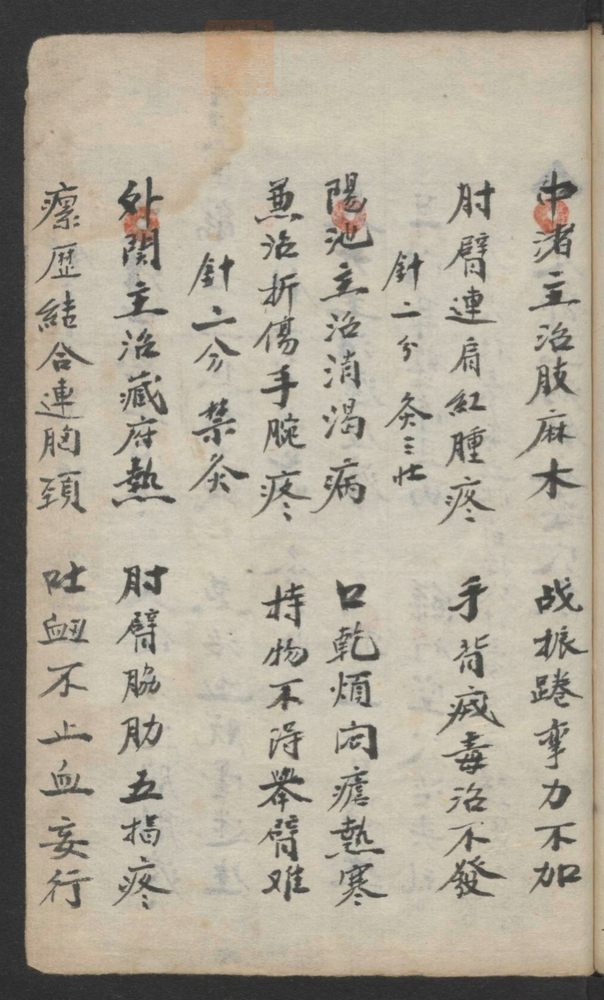 中渚主治肢麻木　战振踡挛力不加
肘臂連肩紅腫疼　手背疯毒治不發
針二分　灸三壮
陽池主治消渴病　口乾煩闷瘧熱寒
兼治折傷手腕疼　持物不得举臂难
針二分　禁灸
外関主治臓府熱　肘臂脇肋五指疼
瘰歴結合連胸頚　吐衂不止血妄行